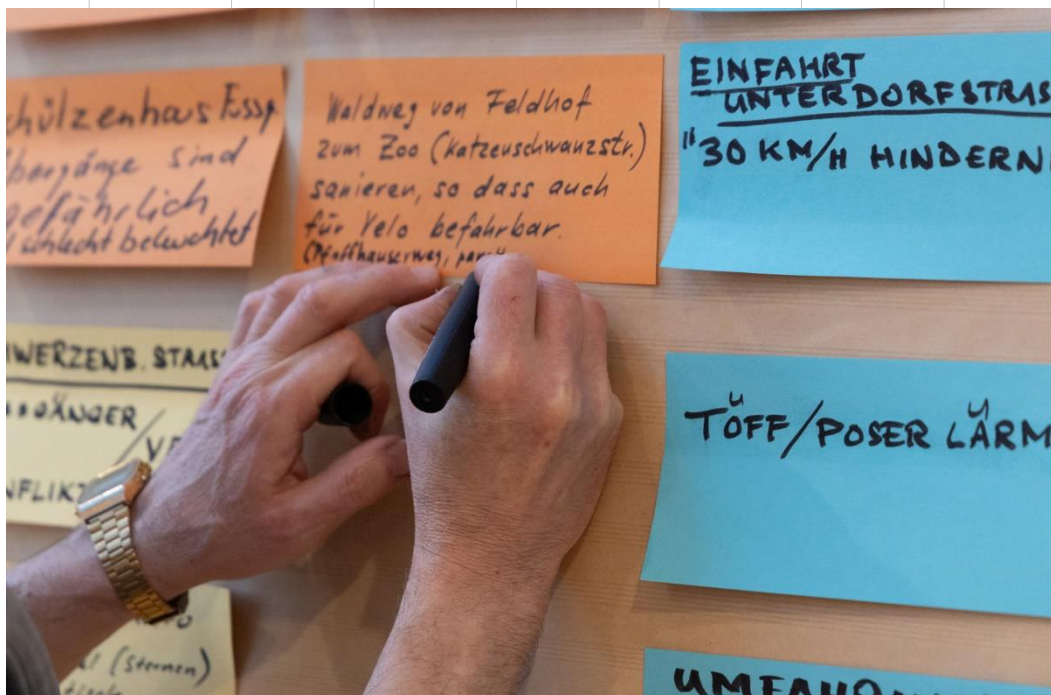 Schützenhaus Essl
Übergänge sind
gefährlich
schlecht beleuchtet
Waldweg von Feldhof
zum Zoo (Katzenschwanzstr.)
sanieren, so dass auch
für Velo befahrbar.
(Pfaffhauserweg,
EINFAHRT
UNTERDORFSTRAS
"30 KM/H HINDERN
WERZENB. STRASS
GÄNGER /
NFLIKT
TÖFF/POSER LÄRM
(Sternen)
UMFAHR